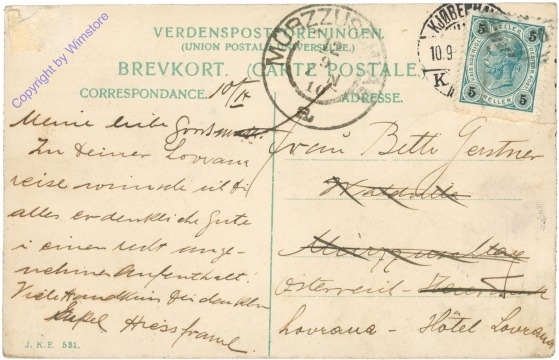 Copyright by Wimstore
VERDENSPOSTFORENINGEN.
(UNION POSTALE UNIVERSELLE.)
BREVKORT. (CARTE POSTALE.)
CORRESPONDANCE.
ADRESSE.
MÜRZZUS
KJØBENHA
10.9
K.
5 5
HELLER
5 5
10/9
Meine liebe
Zu Deiner Lovrana
reise wünsche ich Dir
alles erdenkliche Gute
i einen recht ange-
nehmen Aufenthalt.
Viele
Enkel
Frau Betti Gerstner
Mürzzuschlag
Österreich
Lovrana - Hôtel Lovrana
J. K. E. 531.